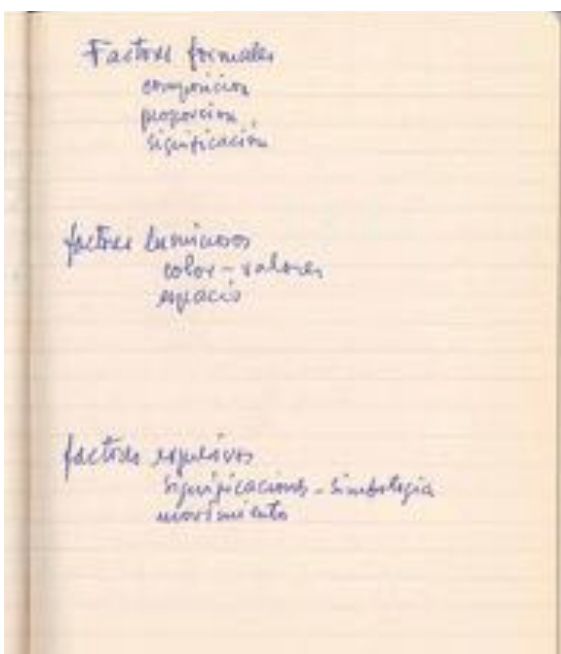 Factores formales
composicion
proporcion
significación
factores luminosos
color - valores
espacio
factores expresivos
significaciones - simbologia
movimiento